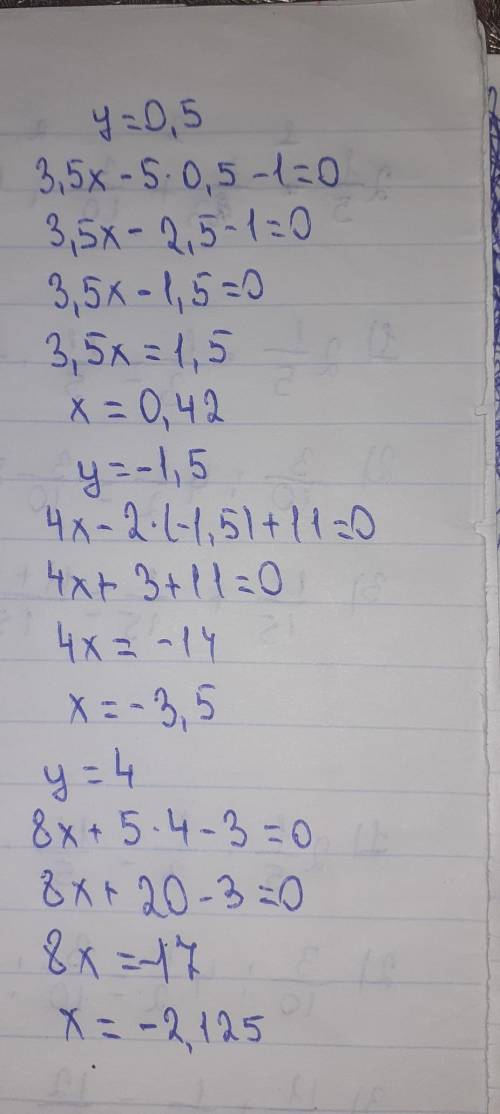 y=0,5
3,5x-5·0,5-1=0
3,5x-2,5-1=0
3,5x-1,5=0
3,5x=1,5
x=0,42
y=-1,5
4x-2·(-1,5)+11=0
4x+3+11=0
4x=-14
x=-3,5
y=4
8x+5·4-3=0
8x+20-3=0
8x=-17
x=-2,125